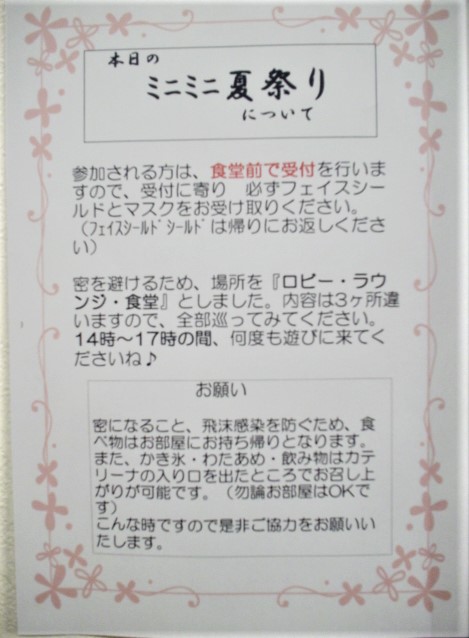 本日の
ミニミニ夏祭り
について
参加される方は、食堂前で受付を行いま
すので、受付に寄り　必ずフェイスシー
ルドとマスクをお受け取りください。
（ﾌｪｲｽｼｰﾙﾄﾞｼｰﾙﾄﾞは帰りにお返しくださ
い）
密を避けるため、場所を『ロビー・ラウ
ンジ・食堂』としました。内容は3ヶ所違
いますので、全部巡ってみてください。
14時～17時の間、何度も遊びに来てく
ださいね♪
お願い
密になること、飛沫感染を防ぐため、食
べ物はお部屋にお持ち帰りとなります。
また、かき氷・わたあめ・飲み物はカテ
リーナの入り口を出たところでお召し上
がりが可能です。（勿論お部屋はOKで
す）
こんな時ですので是非ご協力をお願いい
たします。